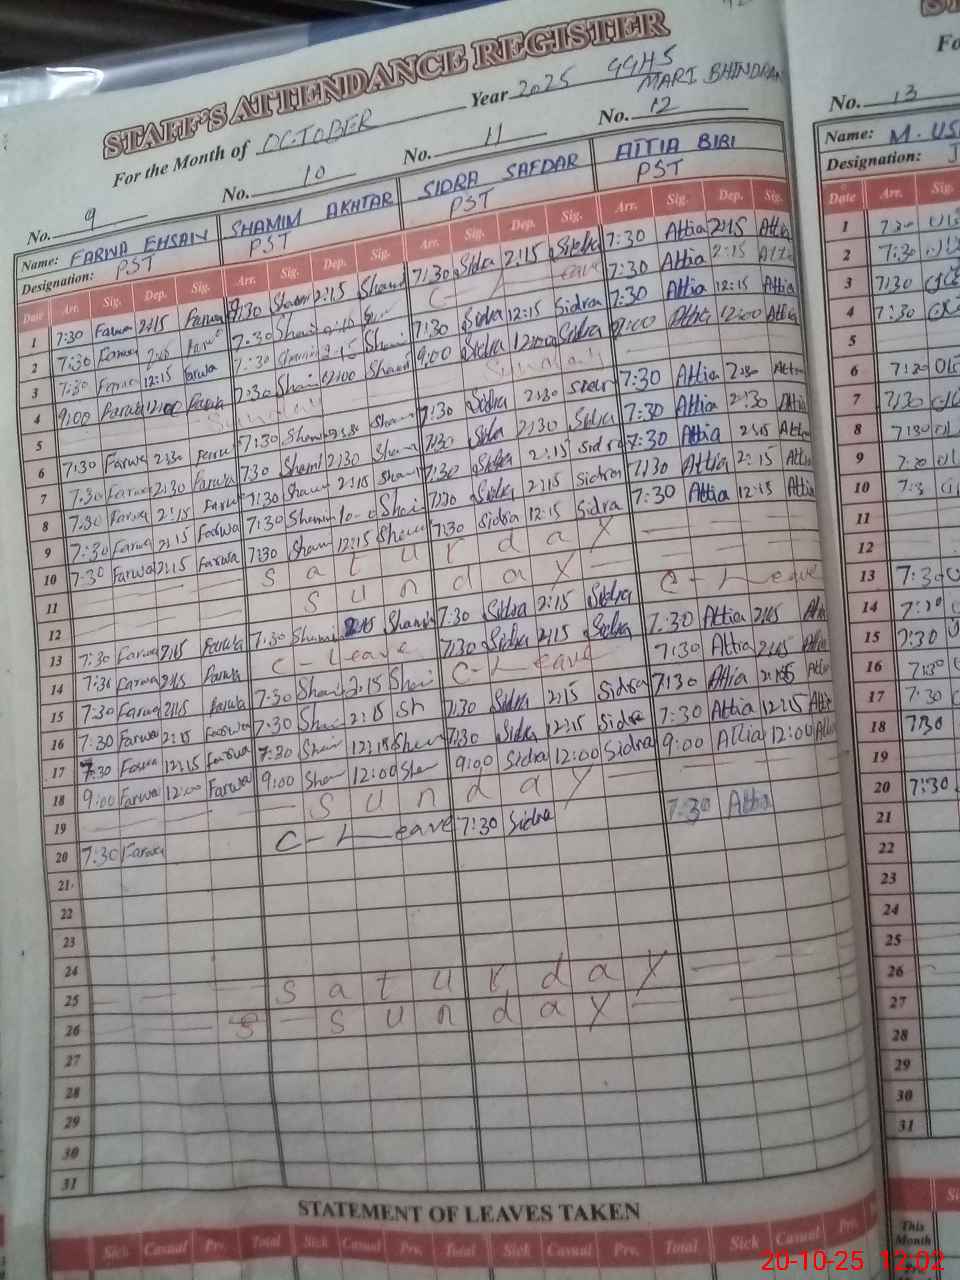 STAFF'S ATTENDANCE REGISTER
For the Month of OCTOBER Year 2025 GGHS
MARI BHINDRAN
No. 9 No. 10 No. 11 No. 12
Name: FARWA EHSAN SHAMIM AKHTAR SIDRA SAFDAR ATTIA BIBI
Designation: PST PST PST PST
Date Arr. Sig. Dep. Sig. Arr. Sig. Dep. Sig. Arr. Sig. Dep. Sig. Arr. Sig. Dep. Sig.
1 7:30 Farwa 2:15 Farwa 7:30 Sham 2:15 Sham 7:30 Sidra 2:15 Sidra 7:30 Attia 2:15 Attia
2 7:30 Farwa 7:30 C-Leave 7:30 Attia 2:15 Attia
3 7:30 Farwa 12:15 Farwa 7:30 7:30 Sidra 12:15 Sidra 7:30 Attia 12:15 Attia
4 9:00 Farwa 12:00 Farwa 12:00 Sham 9:00 Sidra 12:00 Sidra 9:00 Attia 12:00 Attia
5 Sunday
6 7:30 Farwa 2:30 7:30 Sham 7:30 Sidra 2:30 7:30 Attia 2:30 Attia
7 7:30 Farwa 2:30 Farwa 7:30 Sham 2:30 Sham 7:30 Sidra 2:30 Sidra 7:30 Attia 2:30 Attia
8 7:30 Farwa 2:15 Farwa 7:30 Sham 2:15 Sham 7:30 Sidra 2:15 Sidra 7:30 Attia 2:15 Attia
9 7:30 Farwa 2:15 Farwa 7:30 Sham 7:30 Sidra 2:15 Sidra 7:30 Attia 2:15 Attia
10 7:30 Farwa 12:15 Farwa 7:30 Sham 12:15 Sham 7:30 Sidra 12:15 Sidra 7:30 Attia 12:15 Attia
11 Saturday
12 Sunday
13 7:30 Farwa 2:15 Farwa 7:30 2:15 Sham 7:30 Sidra 2:15 Sidra C-Leave
14 7:30 Farwa 2:15 Farwa C-Leave 7:30 Sidra 2:15 Sidra 7:30 Attia 2:15 Attia
15 7:30 Farwa 2:15 Farwa 7:30 2:15 C-Leave 7:30 Attia 2:15 Attia
16 7:30 Farwa 2:15 Farwa 7:30 2:15 Sh 7:30 Sidra 2:15 Sidra 7:30 Attia 2:15 Attia
17 7:30 Farwa 12:15 Farwa 7:30 12:15 7:30 Sidra 12:15 Sidra 7:30 Attia 12:15 Attia
18 9:00 Farwa 12:00 Farwa 9:00 12:00 9:00 Sidra 12:00 Sidra 9:00 Attia 12:00 Attia
19 Sunday
20 7:30 Farwa C-Leave 7:30 Sidra 7:30 Attia
21
22
23
24
25 Saturday
26 S Sunday
27
28
29
30
31
STATEMENT OF LEAVES TAKEN
Sick Casual Prv. Total Sick Casual Prv. Total Sick Casual Prv. Total Sick Casual Prv.
No. 13
Name: M. US
Designation:
Date Arr. Sig.
1 7:30
2 7:30
3 7:30
4 7:30
5
6 7:30
7 7:30
8 7:30
9 7:30
10
11
12
13 7:30
14 7:30
15 7:30
16 7:30
17 7:30
18 7:30
19
20 7:30
21
22
23
24
25
26
27
28
29
30
31
This
Month
20-10-25 12:02